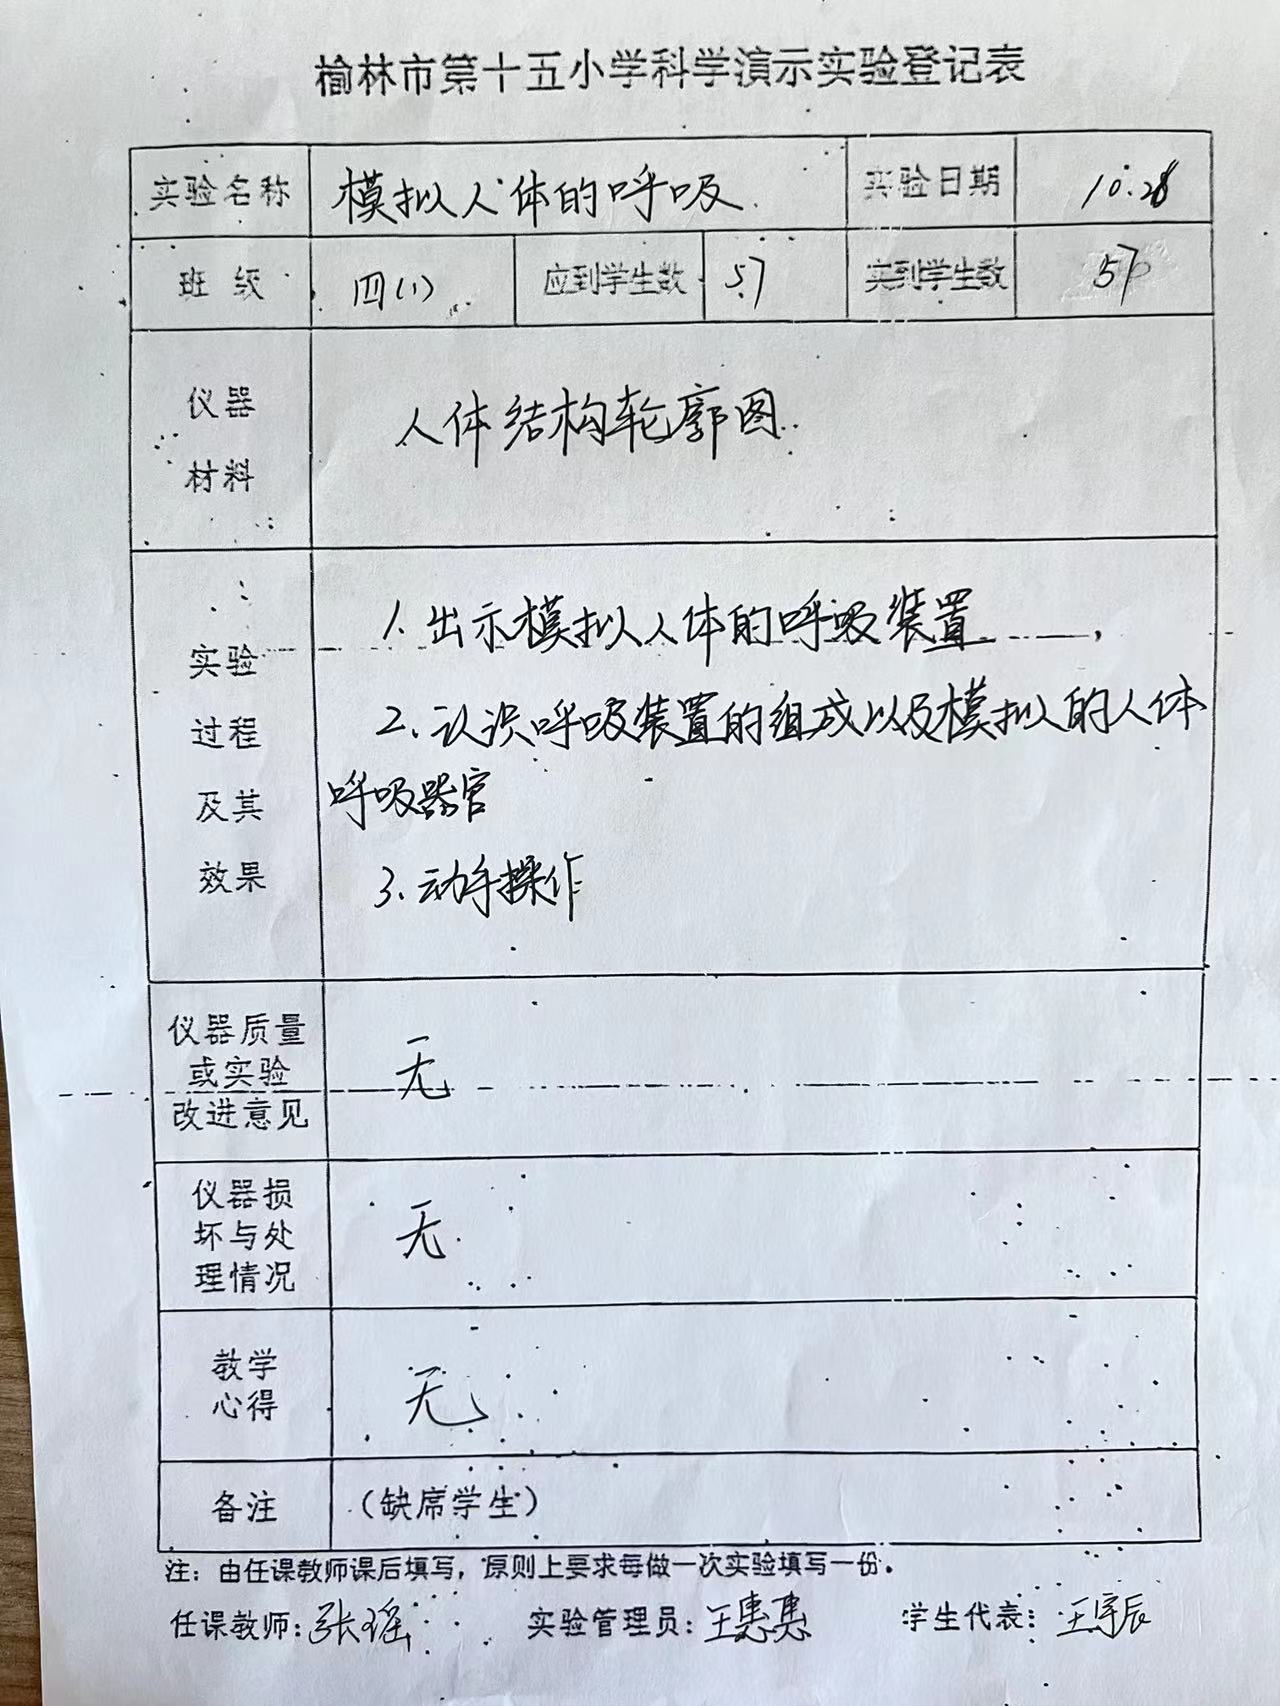 榆林市第十五小学科学演示实验登记表
实验名称 模拟人体的呼吸 实验日期 10.28
班级 四(1) 应到学生数 57 实到学生数 57
仪器
材料
人体结构轮廓图
实验
过程
及其
效果
1.出示模拟人体的呼吸装置
2.认识呼吸装置的组成以及模拟的人体
呼吸器官
3.动手操作
仪器质量
或实验
改进意见
无
仪器损
坏与处
理情况
无
教学
心得
无
备注 (缺席学生)
注：由任课教师课后填写，原则上要求每做一次实验填写一份。
任课教师：张瑶 实验管理员：王惠惠 学生代表：王宇辰